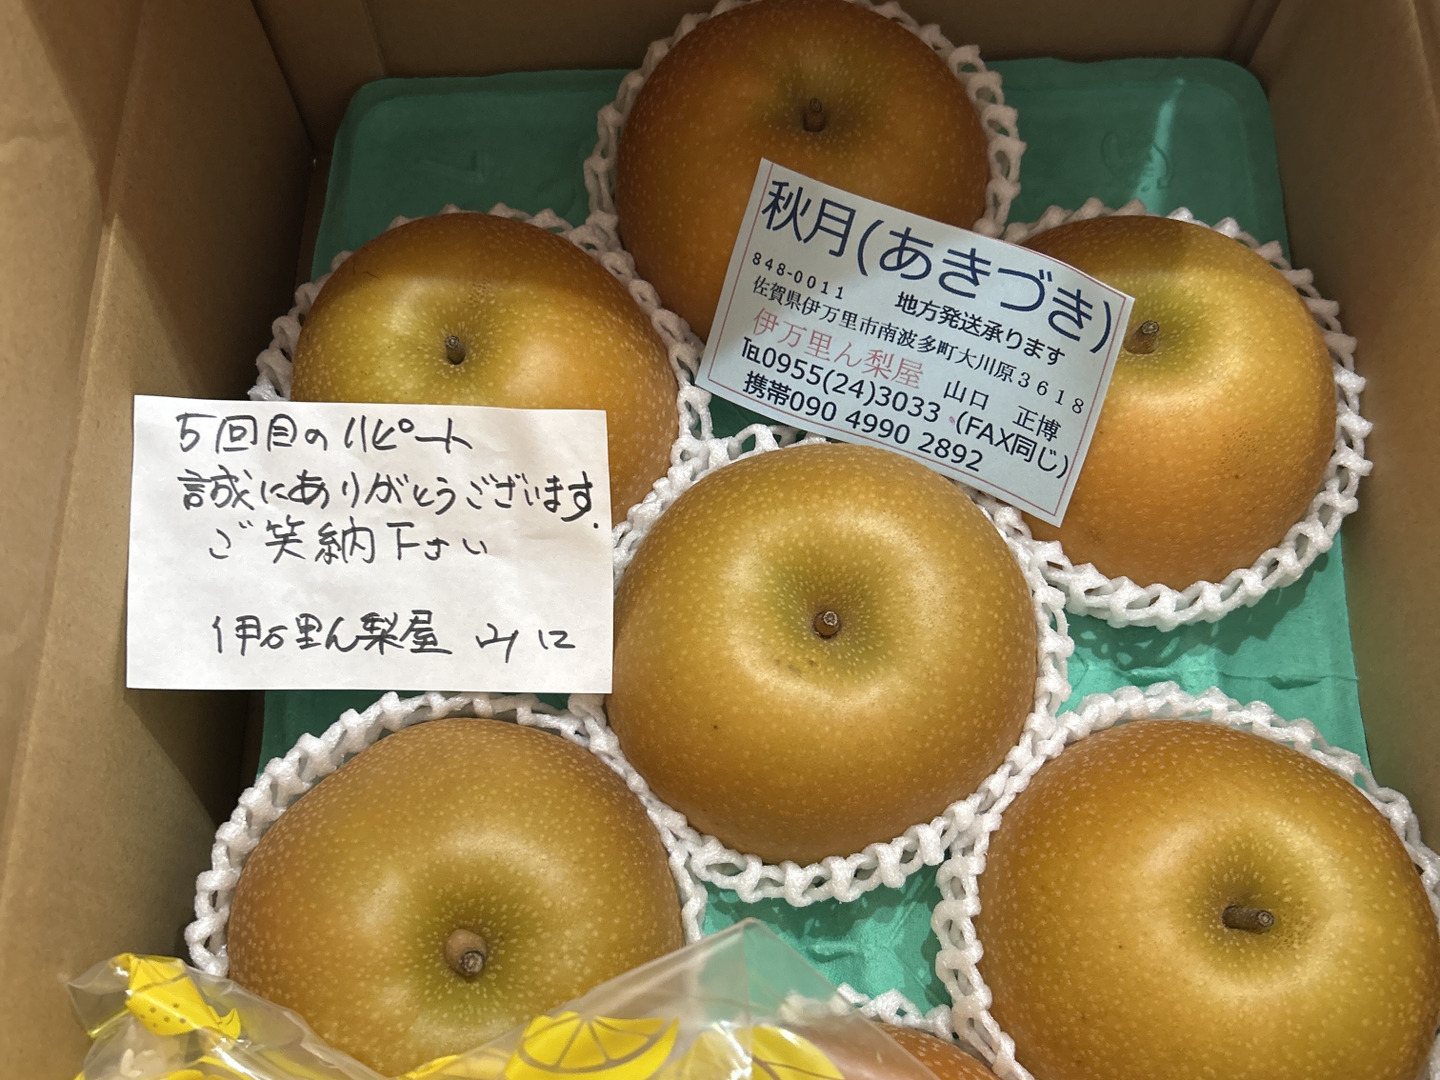 秋月(あきづき)
848-0011
地方発送承ります
佐賀県伊万里市南波多町大川原3618
伊万里ん梨屋 山口 正博
℡0955(24)3033 (FAX同じ)
携帯090 4990 2892
5回目のリピート
誠にありがとうございます.
ご笑納下さい
伊万里ん梨屋 山口